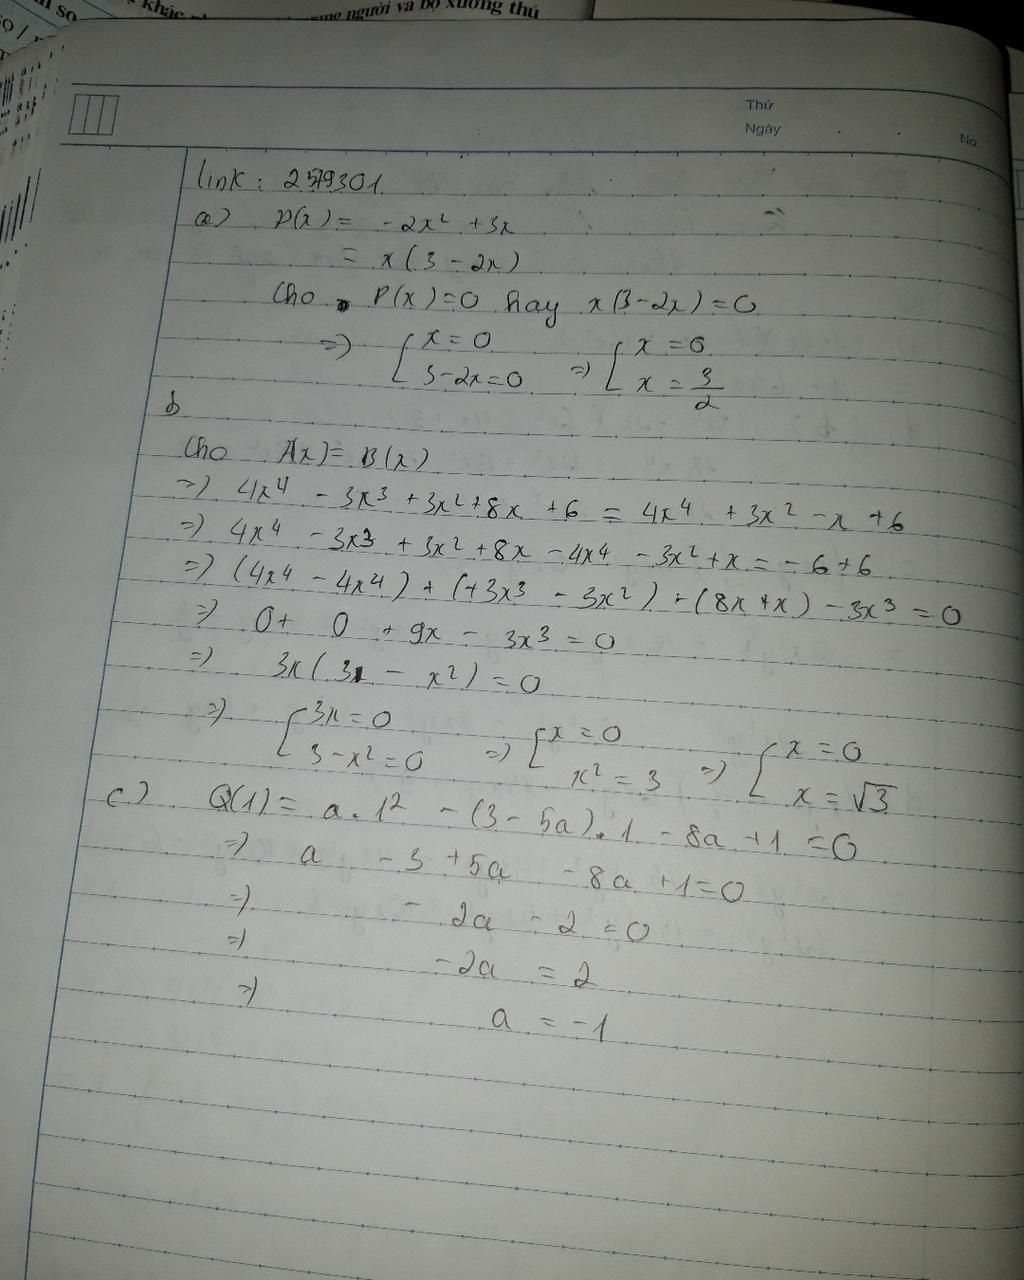 khác
người và bộ xương thú
Thứ
Ngày
No.
link: 2579301
a) P(x) = -2x² + 3x
= x(3 - 2x)
Cho P(x)=0 hay x(3-2x)=0
=> [ x = 0 => [ x = 0
3-2x=0 x = 3/2
b
Cho A(x) = B(x)
=> 4x⁴ - 3x³ + 3x² + 8x + 6 = 4x⁴ + 3x² - x + 6
=> 4x⁴ - 3x³ + 3x² + 8x - 4x⁴ - 3x² + x = -6+6
=> (4x⁴ - 4x⁴) + (+3x³ - 3x²) + (8x+x) - 3x³ = 0
=> 0 + 0 + 9x - 3x³ = 0
=> 3x(3 - x²) = 0
=> [ 3x = 0 => [ x = 0 => [ x = 0
3-x² = 0 x² = 3 x = √3
c) Q(1) = a.1² - (3-5a).1 - 8a + 1 = 0
=> a - 3 + 5a - 8a + 1 = 0
=> - 2a - 2 = 0
=> -2a = 2
=> a = -1